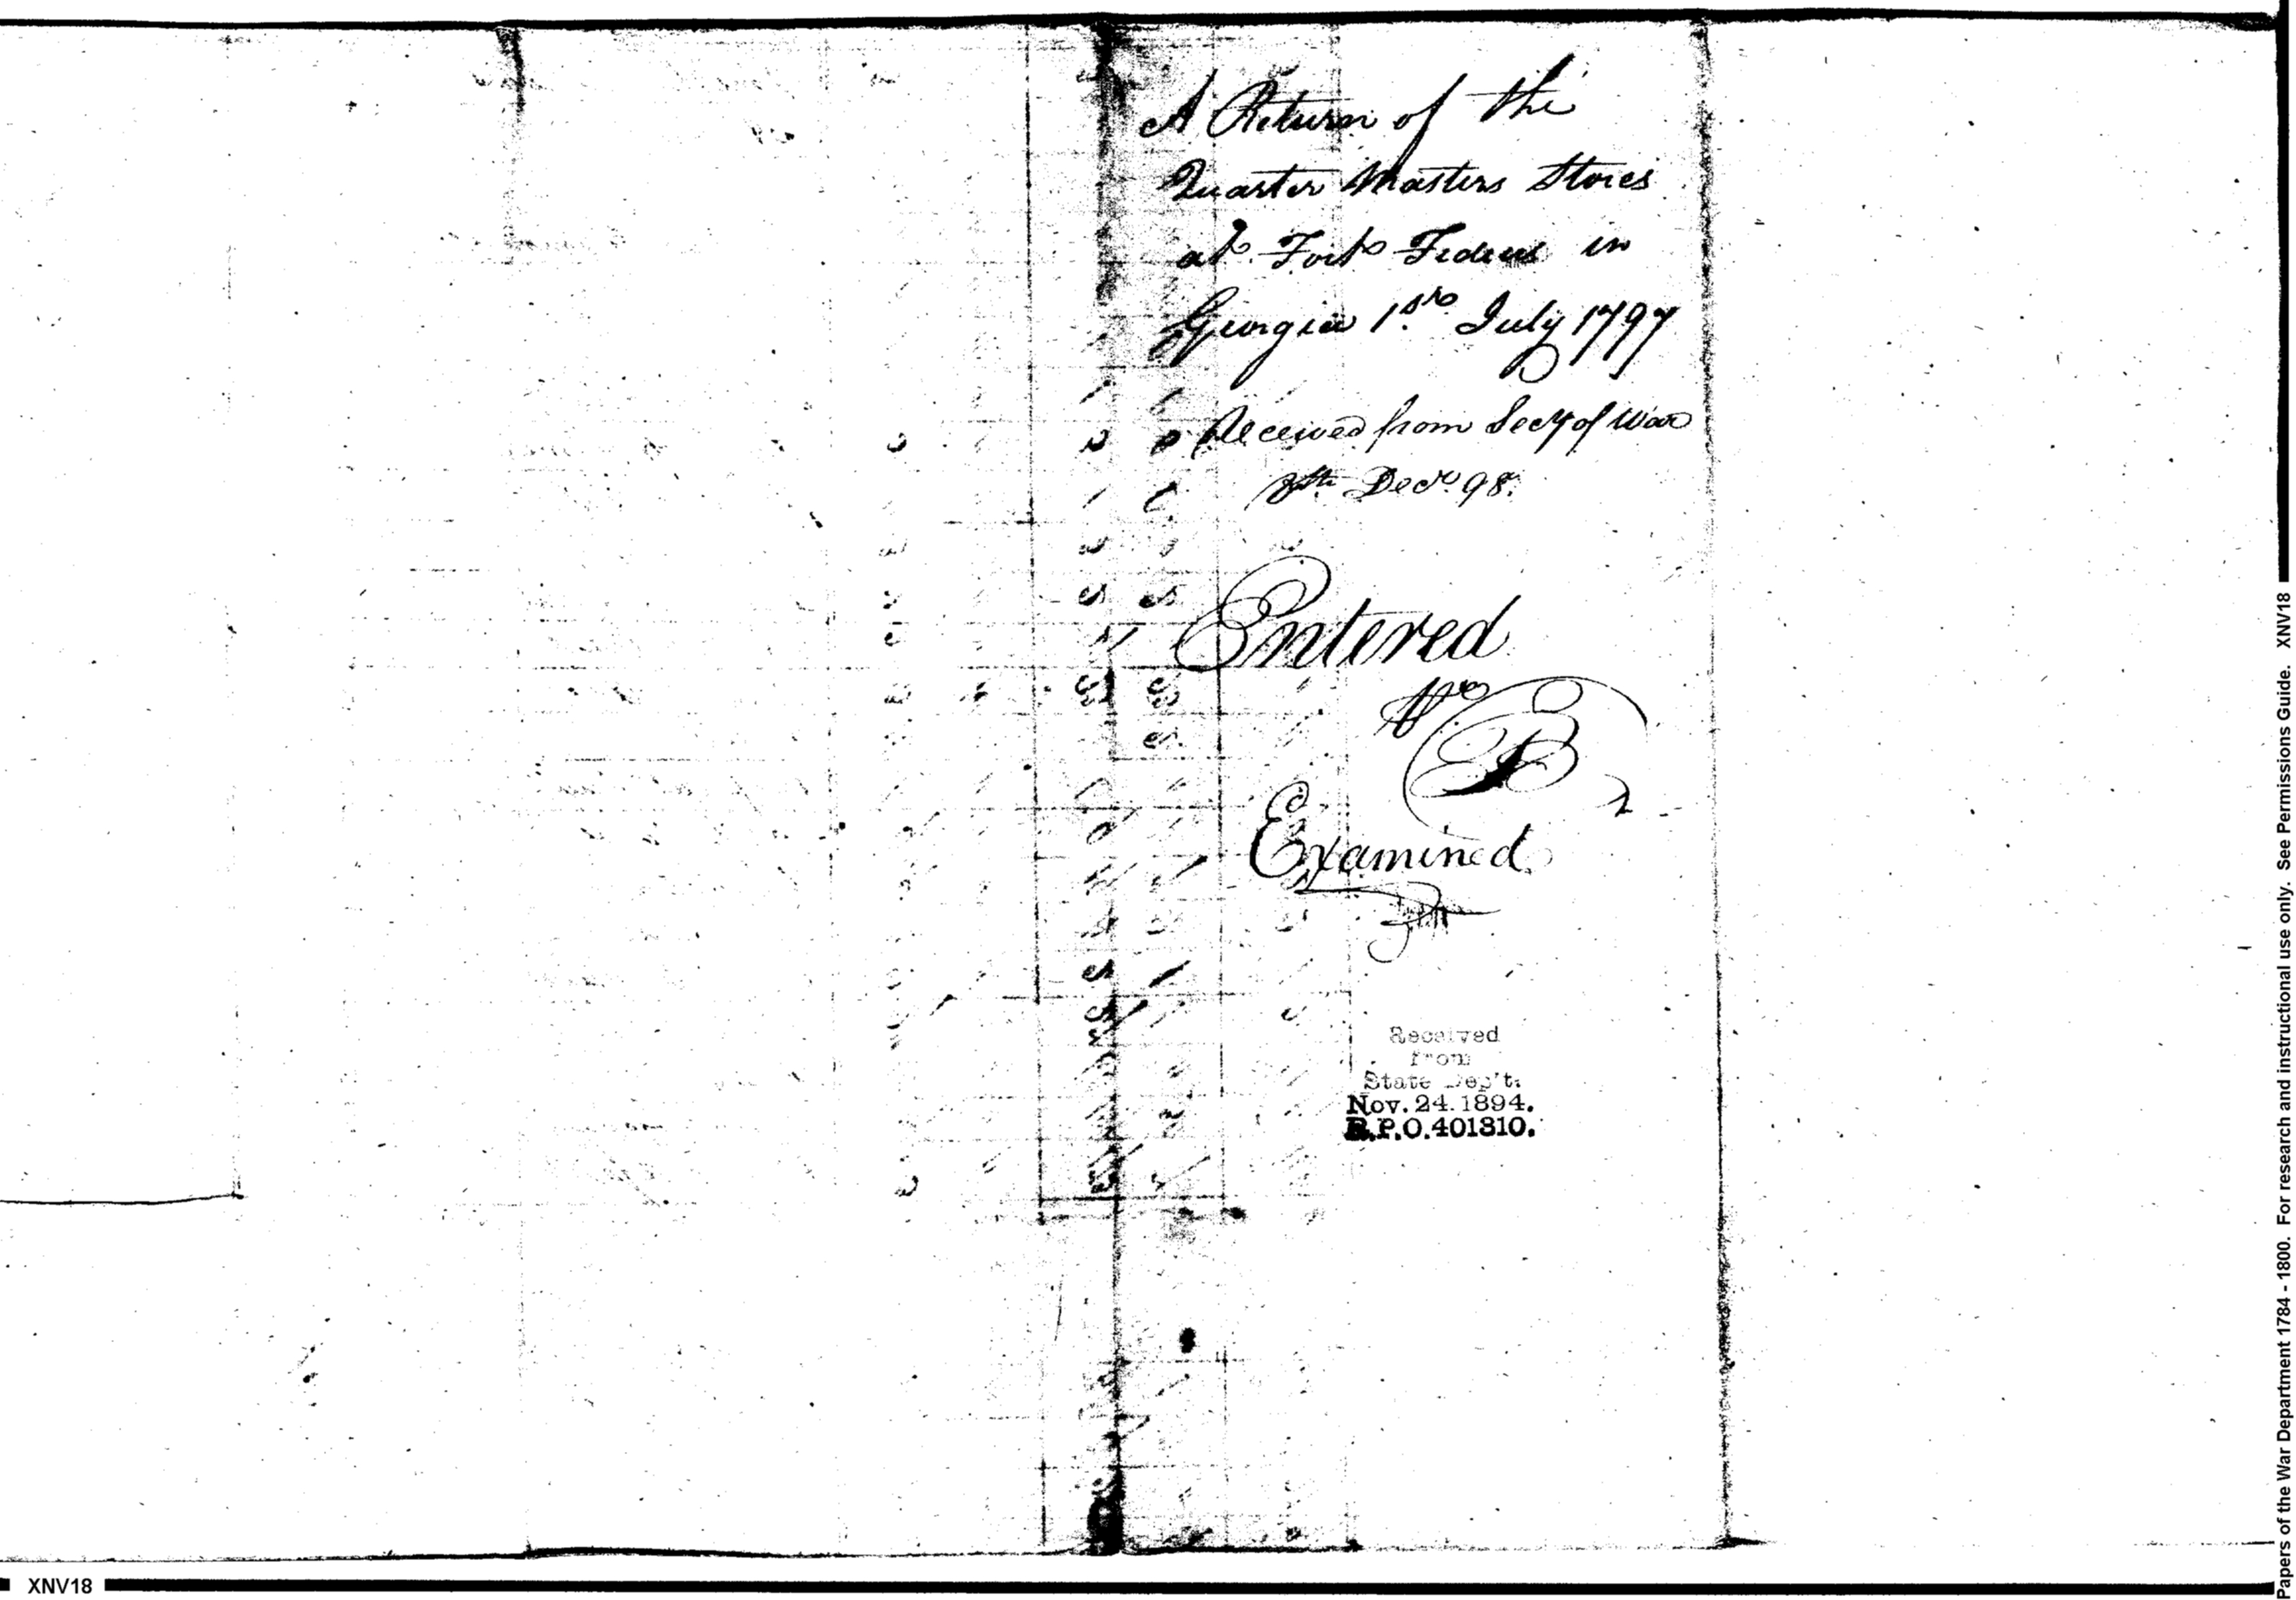 A Return of the
Quarter Masters Stores
at Fort Fidius in
Georgia 1st. July 1797
Received from Secy of War
8th Decr. 98.
Entered
No
B
Examined
Received
from
State Dep't.
Nov. 24. 1894.
R.P.O. 401310.
XNV18
Papers of the War Department 1784 - 1800. For research and instructional use only. See Permissions Guide. XNV18